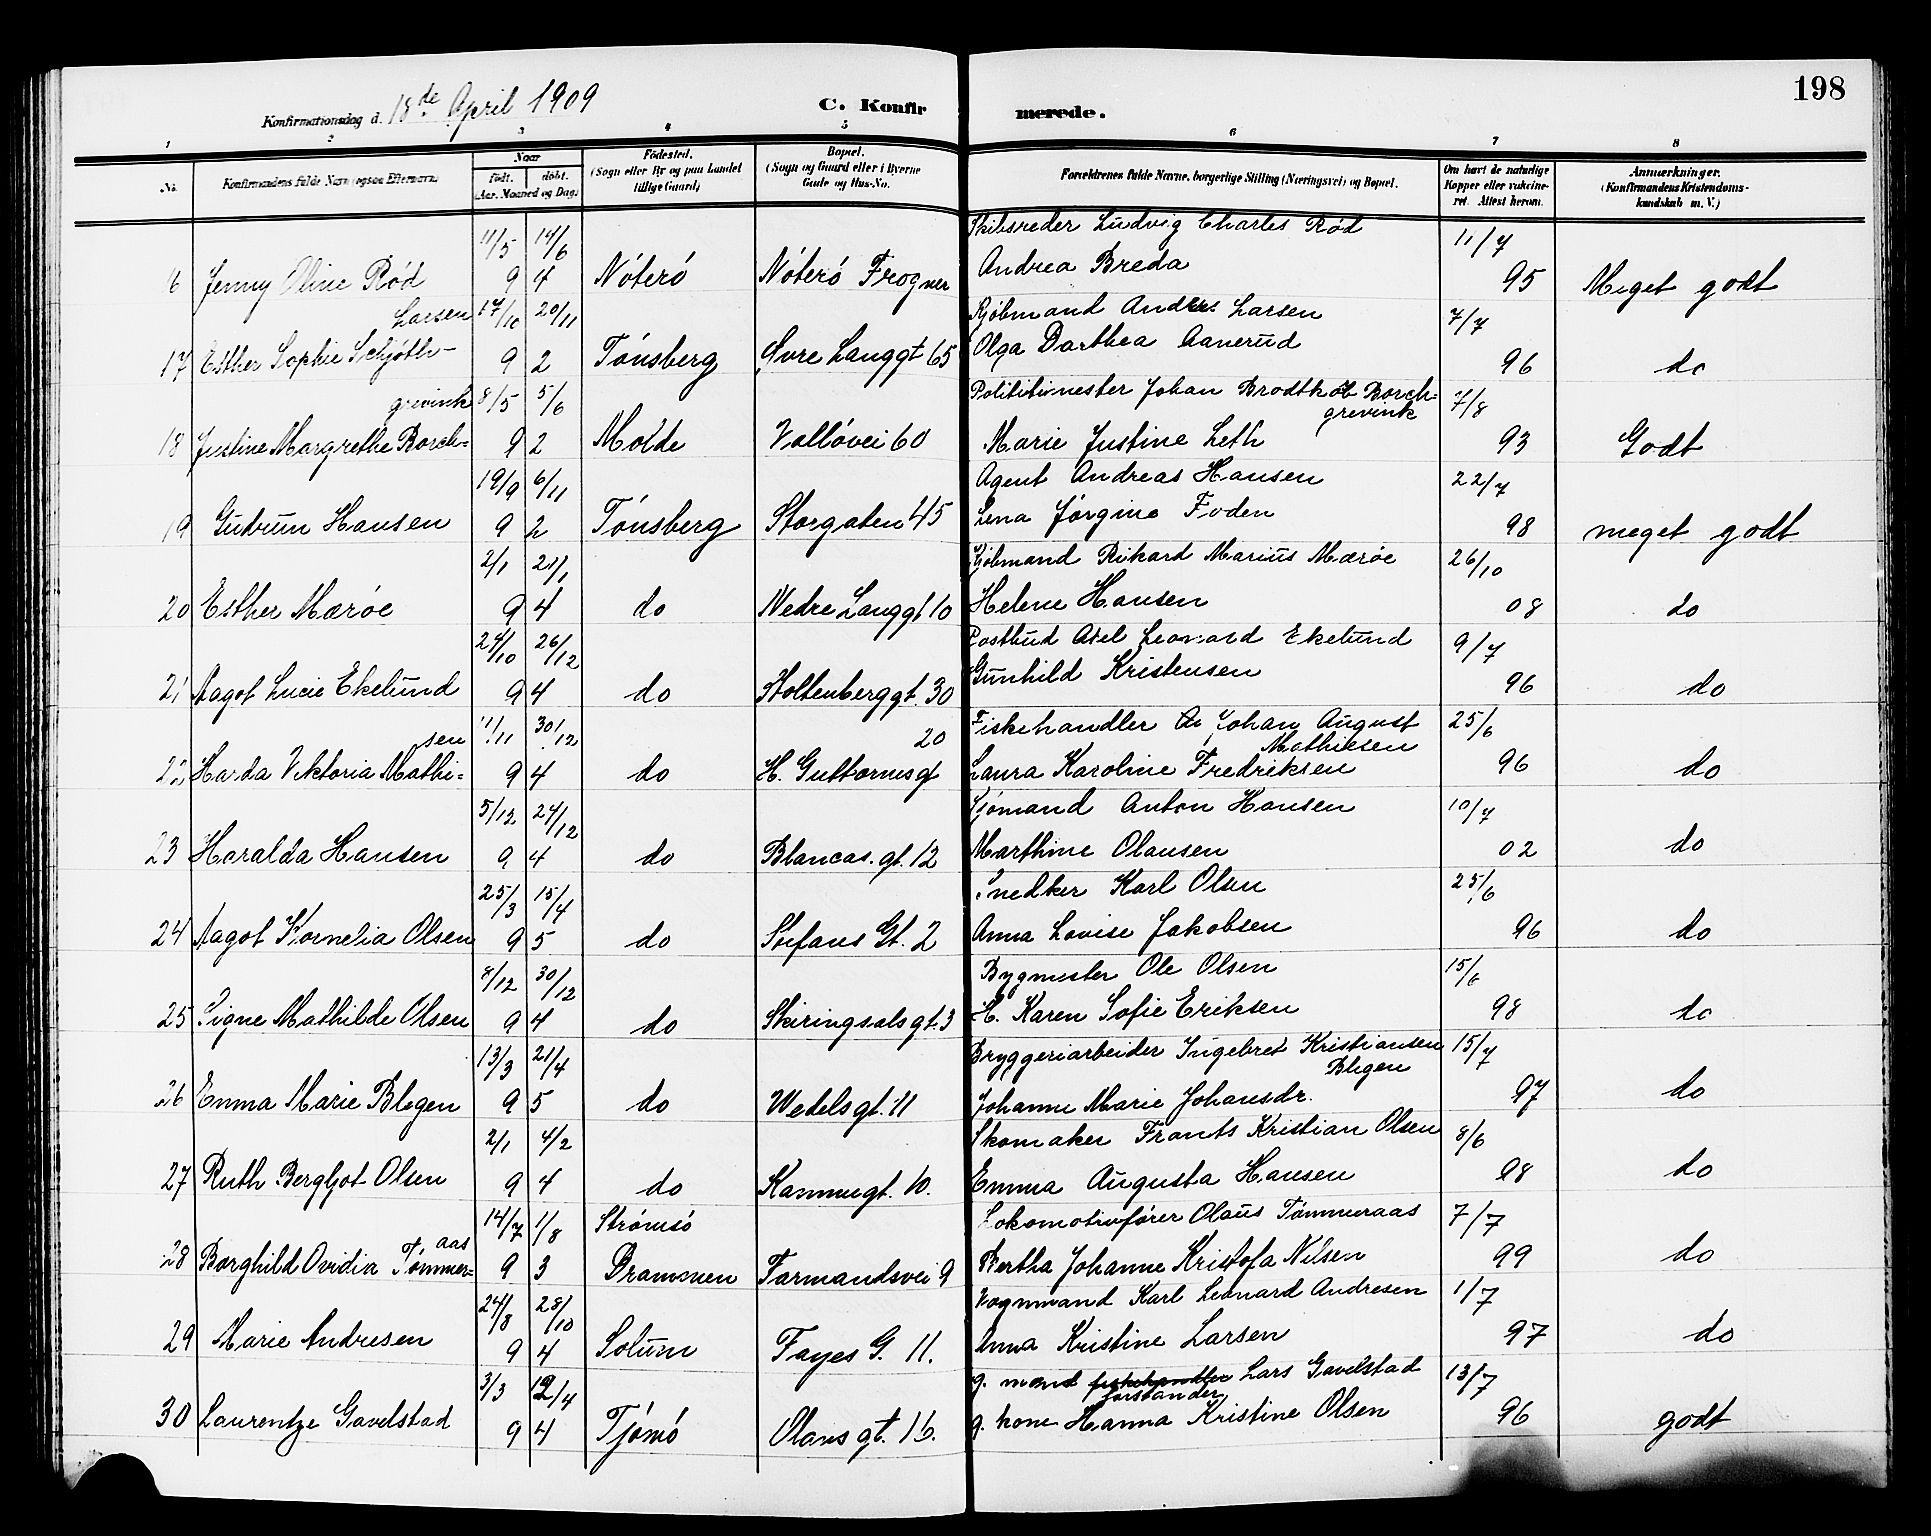 198
Konfirmationsdag d. 18de April 1909 C. Konfirmerede.
1 2 3 4 5 6 7 8
No. Konfirmandens fulde Navn (ogsaa Efternavn) Naar født. døbt. (Aar, Maaned og Dag) Fødested. (Sogn eller By og paa Landet tillige Gaard) Bopæl. (Sogn og Gaard eller i Byerne Gade og Hus-No. Forældrenes fulde Navne, borgerlige Stilling (Næringsvei) og Bopæl. Om havt de naturlige Kopper eller vakcineret. Attest herom. Anmærkninger. (Konfirmandens Kristendomskundskab m. V.)
11/5 14/6 Skibsreder Ludvig Charles Rød 11/7
6 Jenny Oline Rød 9 4 Nøterø Nøterø Frogner Andrea Breda 95 Meget godt
Larsen 17/10 20/11 Kjøbmand Anders Larsen 7/7
17 Esther Sophie Schjøth- 9 2 Tønsberg Øvre Langgt 65 Olga Dorthea Aanerud 96 do
grevink 8/5 5/6 Politimester Johan Brodtkob Borch-
grevink 7/8
18 Justine Margrethe Borch- 9 2 Molde Valløvei 60 Marie Justine Leth 93 Godt
19/9 6/11 Agent Andreas Hansen 22/7
19 Gudrun Hansen 9 2 Tønsberg Storgaten 45 Lena Jørgine Foden 98 meget godt
2/1 21/1 Kjøbmand Rikard Marius Mærøe 26/10
20 Esther Mærøe 9 4 do Nedre Langgt 10 Helene Hansen 08 do
24/10 26/12 Postbud Axel Leonard Ekelund 9/7
21 Aagot Lucie Ekelund 9 4 do Stoltenberggt. 30 Gunhild Kristensen 96 do
sen 11/11 30/12 20 Fiskehandler Johan August
Mathiesen 25/6
22 Harda Viktoria Mathi- 9 4 do H. Guttormsgt Laura Karoline Fredriksen 96 do
5/12 27/12 Sjømand Anton Hansen 10/7
23 Haralda Hansen 9 4 do Blancas. gt. 12 Marthine Olausen 02 do
25/3 15/4 Snedker Karl Olsen 25/6
24 Aagot Kornelia Olsen 9 5 do Stefans Gt. 2 Anna Lovise Jakobsen 96 do
8/12 30/12 Bygmester Ole Olsen 15/6
25 Signe Mathilde Olsen 9 4 do Skiringsalsgt. 3 H. Karen Sofie Eriksen 98 do
13/3 21/4 Bryggeriarbeider Ingebret Kristiansen
Blegen 15/7
26 Emma Marie Blegen 9 5 do Wedelsgt. 11 Johanne Marie Johansdr. 97 do
2/1 4/2 Skomaker Frants Kristian Olsen 8/6
27 Ruth Bergljot Olsen 9 4 do Kammegt. 10. Emma Augusta Hansen 98 do
14/7 1/8 Strømsø Lokomotivfører Olaus Tømmeraas 7/7
aas
28 Borghild Ovidia Tømmer- 9 3 Drammen Farmandsvei 9 Bertha Johanne Kristofa Nilsen 99 do
24/8 28/10 Vognmand Karl Leonard Andresen 1/7
29 Marie Andresen 9 4 Solum Fayes G. 11. Anna Kristine Larsen 97 do
3/3 12/4 g. mand fiskehandler Lars Gavelstad 13/7
forstander
30 Laurentze Gavelstad 9 4 Tjømø Olavsgt. 16. g. kone Hanna Kristine Olsen 96 godt